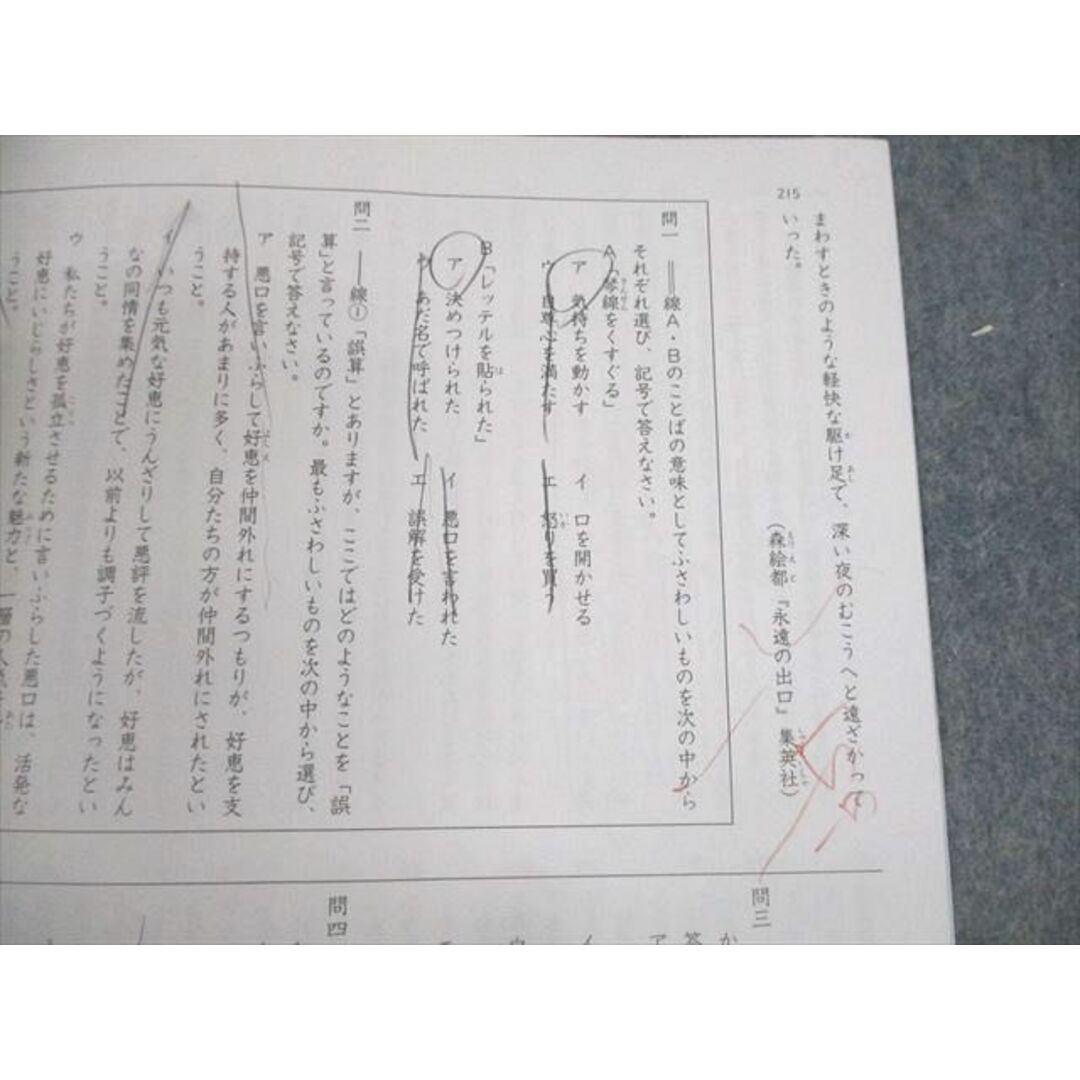 215
まわすときのような軽快な駆け足で、深い夜のむこうへと遠ざかって
いった。
(森絵都『永遠の出口』集英社)
問一 ══線A・Bのことばの意味としてふさわしいものを次の中から
それぞれ選び、記号で答えなさい。
A「琴線をくすぐる」
ア 気持ちを動かす イ 口を開かせる
ウ 自尊心を満たす エ 怒りを買う
B「レッテルを貼られた」
ア 決めつけられた イ 悪口を言われた
ウ あだ名で呼ばれた エ 誤解を受けた
問二 ――線①「誤算」とありますが、ここではどのようなことを「誤
算」と言っているのですか。最もふさわしいものを次の中から選び、
記号で答えなさい。
ア 悪口を言いふらして好恵を仲間外れにするつもりが、好恵を支
持する人があまりに多く、自分たちの方が仲間外れにされたとい
うこと。
イ いつも元気な好恵にうんざりして悪評を流したが、好恵はみん
なの同情を集めたことで、以前よりも調子づくようになったとい
うこと。
ウ 私たちが好恵を孤立させるために言いふらした悪口は、活発な
好恵にいじらしさという新たな魅力と、一層の人気を
うこと。
問三
か
答
ア
イ
ウ
問四